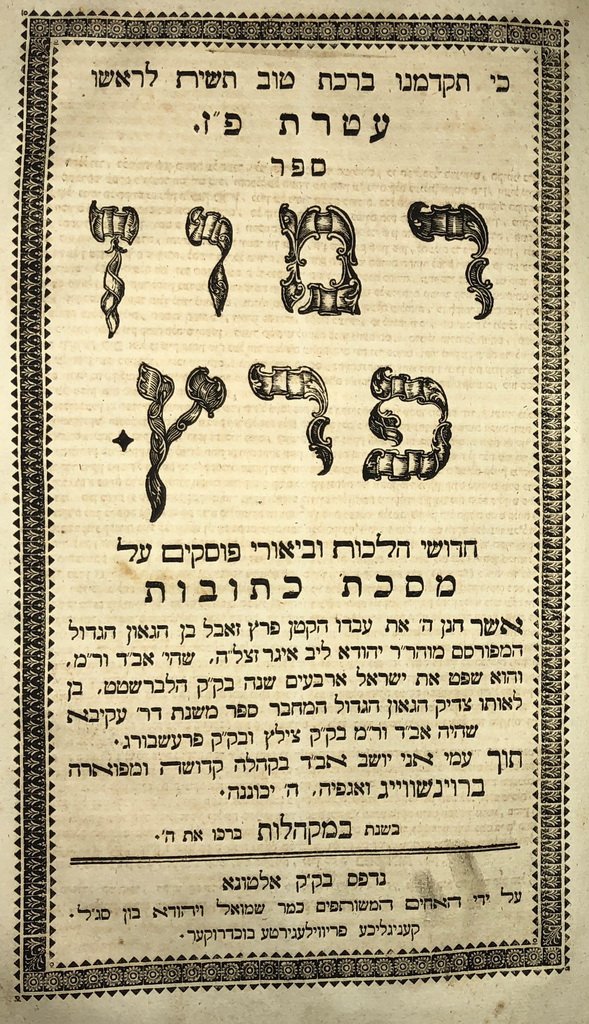 כי תקדמנו ברכת טוב תשית לראשו
עטרת פ״ז.
ספר
רמון
פרץ
חדושי הלכות וביאורי פוסקים על
מסכת כתובות
אשר חנן ה׳ את עבדו הקטן פרץ זאבל בן הגאון הגדול
המפורסם מוהר״ר יהודא ליב איגר זצל״ה, שהי׳ אב״ד ור״מ,
והוא שפט את ישראל ארבעים שנה בק״ק הלברשטט, בן
לאותו צדיק הגאון הגדול המחבר ספר משנת דר׳ עקיבא
שהיה אב״ד ור״מ בק״ק צילץ ובק״ק פרעשבורג.
תוך עמי אני יושב אב״ד בקהלה קדושה ומפוארה
ברוינשווייג ואגפיה, ה׳ יכוננה.
בשנת במקהלות ברכו את ה׳.
נדפס בק״ק אלטונא
על ידי האחים המשותפים כמר שמואל ויהודא בון סג״ל.
קעניגליכע פריווילעגירטע בוכדרוקער.